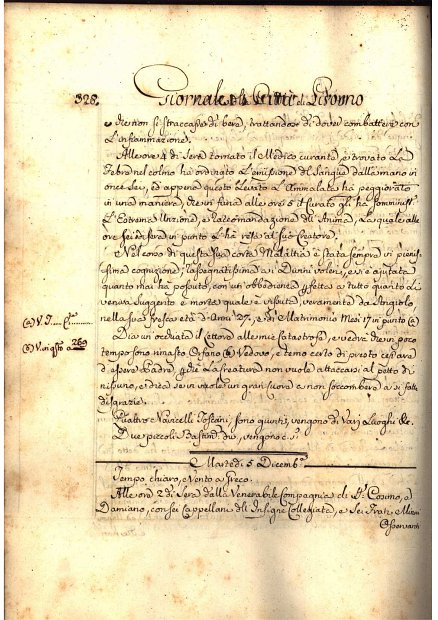 328. Giornale della Città di Livorno
che non si straccasse di bere, trattandosi di dover combattere con
L'infiammazione.
Alle ore 4 di Sera tornato il Medico curante, e trovato La
Febre nel colmo ha ordinato L'emissione del Sangue dalla mano in
once sei, ed appena questo Levato L'Ammalata ha peggiorato
in una maniera, che in fine alle ore 5 il Curato gli ha
L'Estrema Unzione, e Raccomandazione dell' Anima, La quale alle
ore sei di sera in punto L'ha resa al suo Creatore.
Nel corso di questa sua corta Malattia è stata sempre in pienis
sima cognizione, rassegnatissima ai Divini voleri, e si è ajutata
quanto mai ha possuto, con un'obbedienza perfetta a tutto quanto Li
veniva suggerito, è morta quale è vissuta, veramente da Angiolo
nella sua fresca età d'Anni 27, e di Matrimonio Mesi 17 in punto (a)
Dia un'occhiata il Lettore alle mie Catastrofi, e vedrà che in poco
tempo sono rimasto Orfano (b) Vedovo, e temo certo di presto cessare
d'essere Padre, perche La Creatura non vuole attaccarsi al petto di
nissuno, e dica se in vaso un gran cuore a non soccombere a si fatte
disgrazie.
Quattro Navicelli Toscani, sono giunti, vengono di Varj Luoghi &c.
Due piccoli Bastim.ti d.i, vengono c.s.
(a) V. F.
(b) V. in q.sto a 269
Martedì 5 Dicemb.e
Tempo chiaro, Vento a Greco.
Alle ore 2 di Sera dalla Venerabile Compagnia di S.s Cosimo, e
Damiano, con sei Cappellani dell' Insigne Collegiata, e Sei Frati Minori
Osservanti